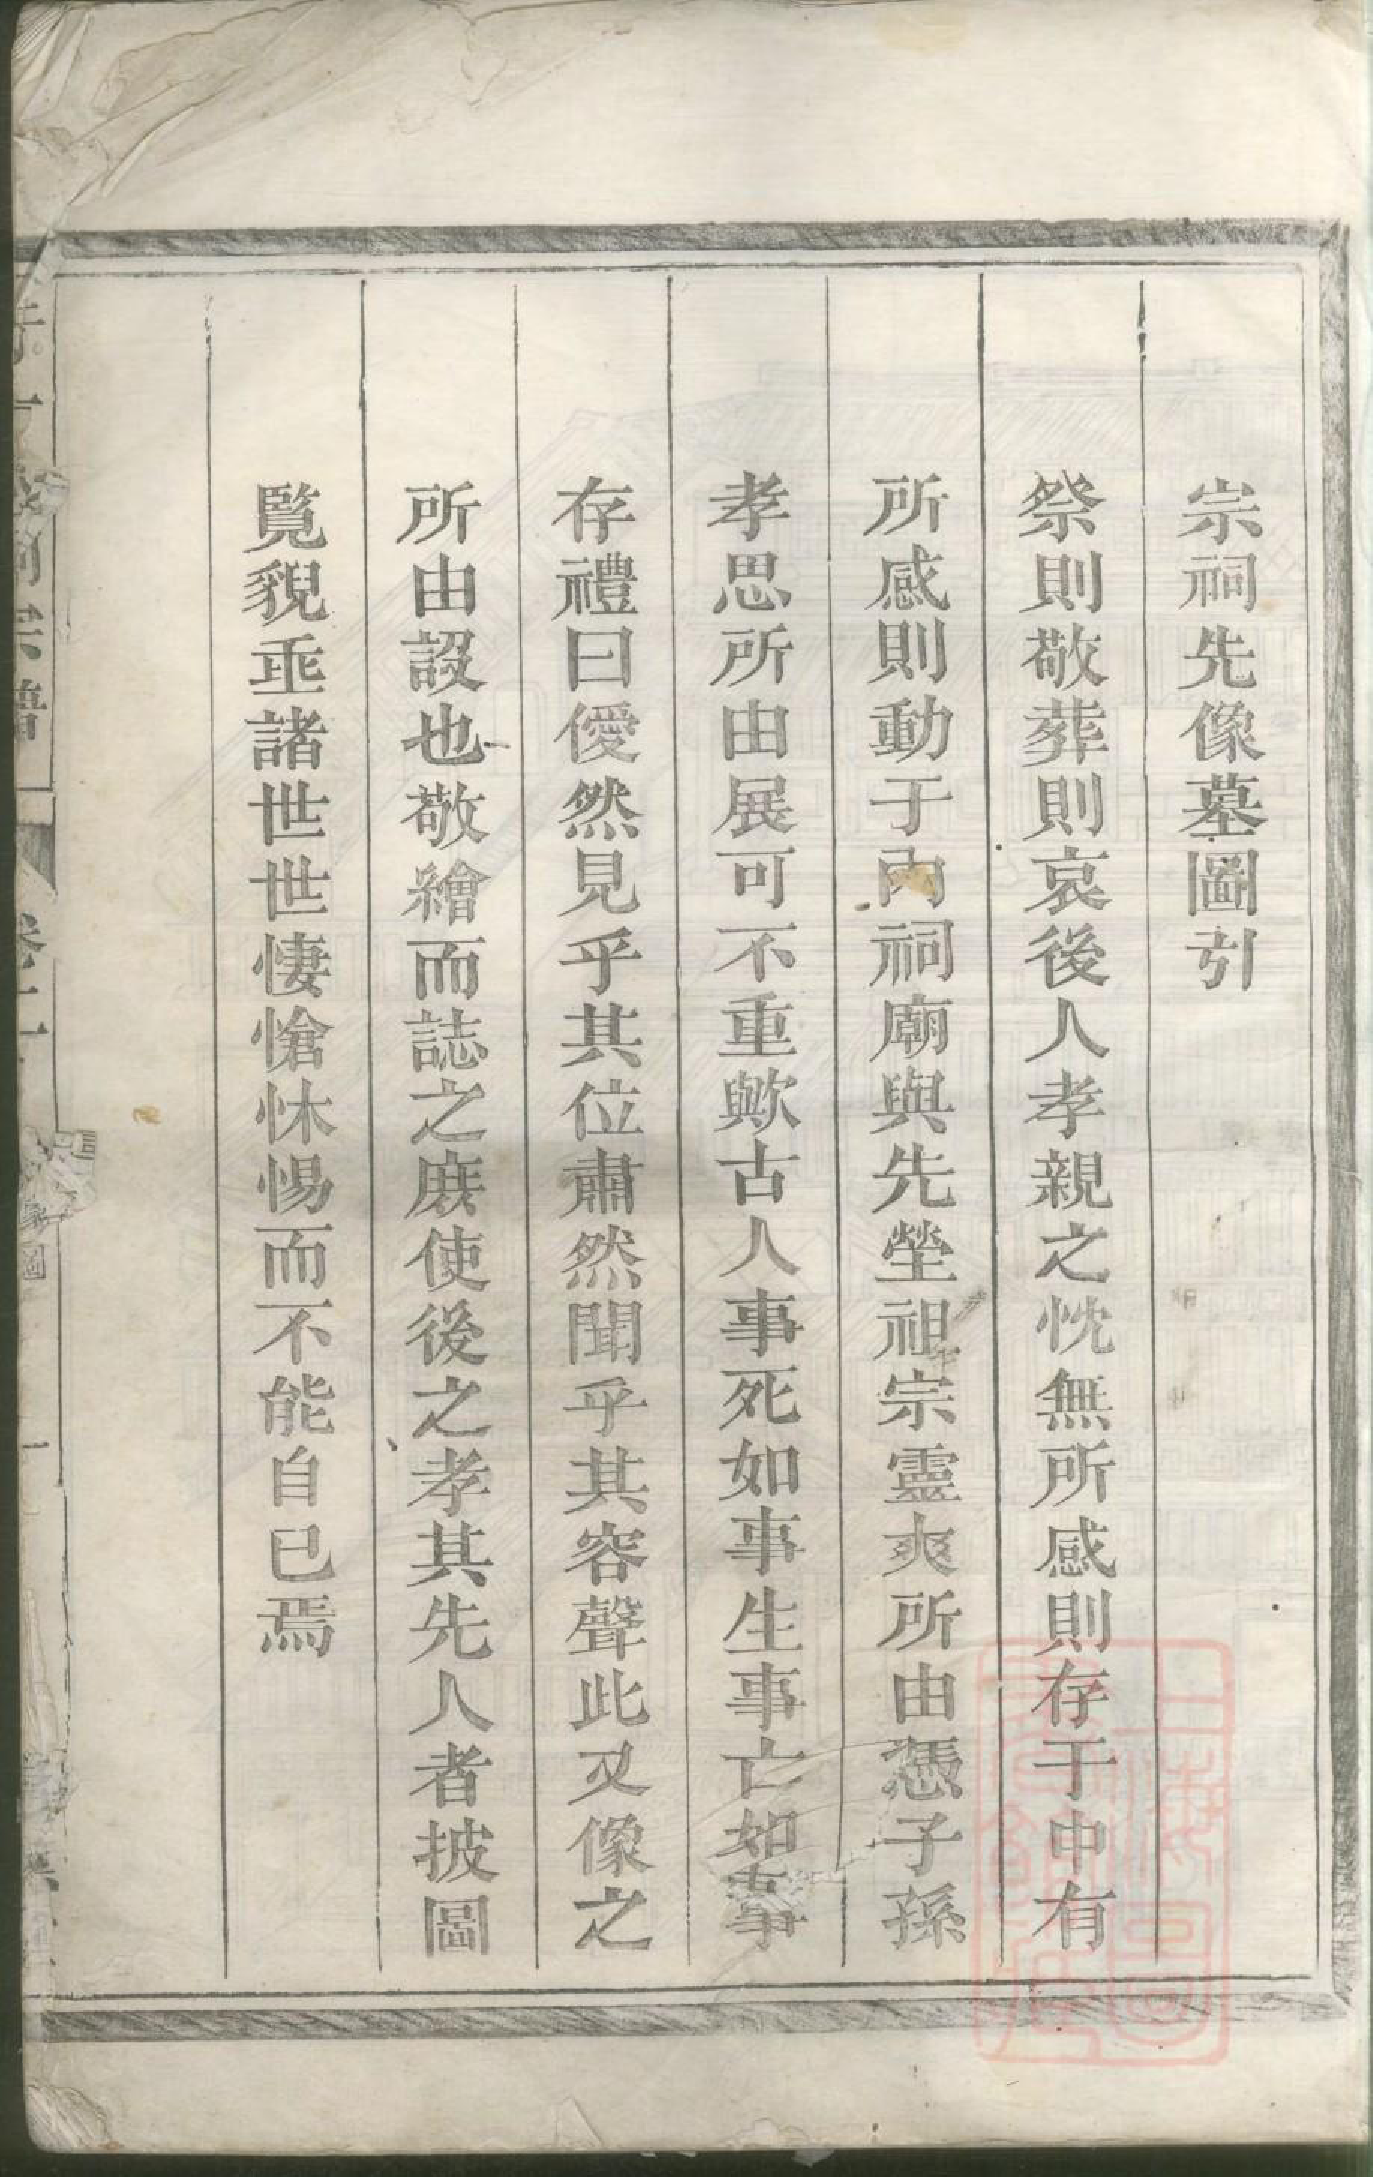 宗祠先像墓圖引
祭則敬葬則哀後人孝親之忱無所感則存于中有
所感則動于內祠廟與先塋祖宗靈爽所由憑子孫
孝思所由展可不重歟古人事死如事生事亡如事
存禮曰僾然見乎其位肅然聞乎其容聲此又像之
所由設也敬繪而誌之庶使後之孝其先人者披圖
覽貌乖諸世世悽愴怵惕而不能自已焉
宗譜
卷一
圖
一
上海圖書館藏